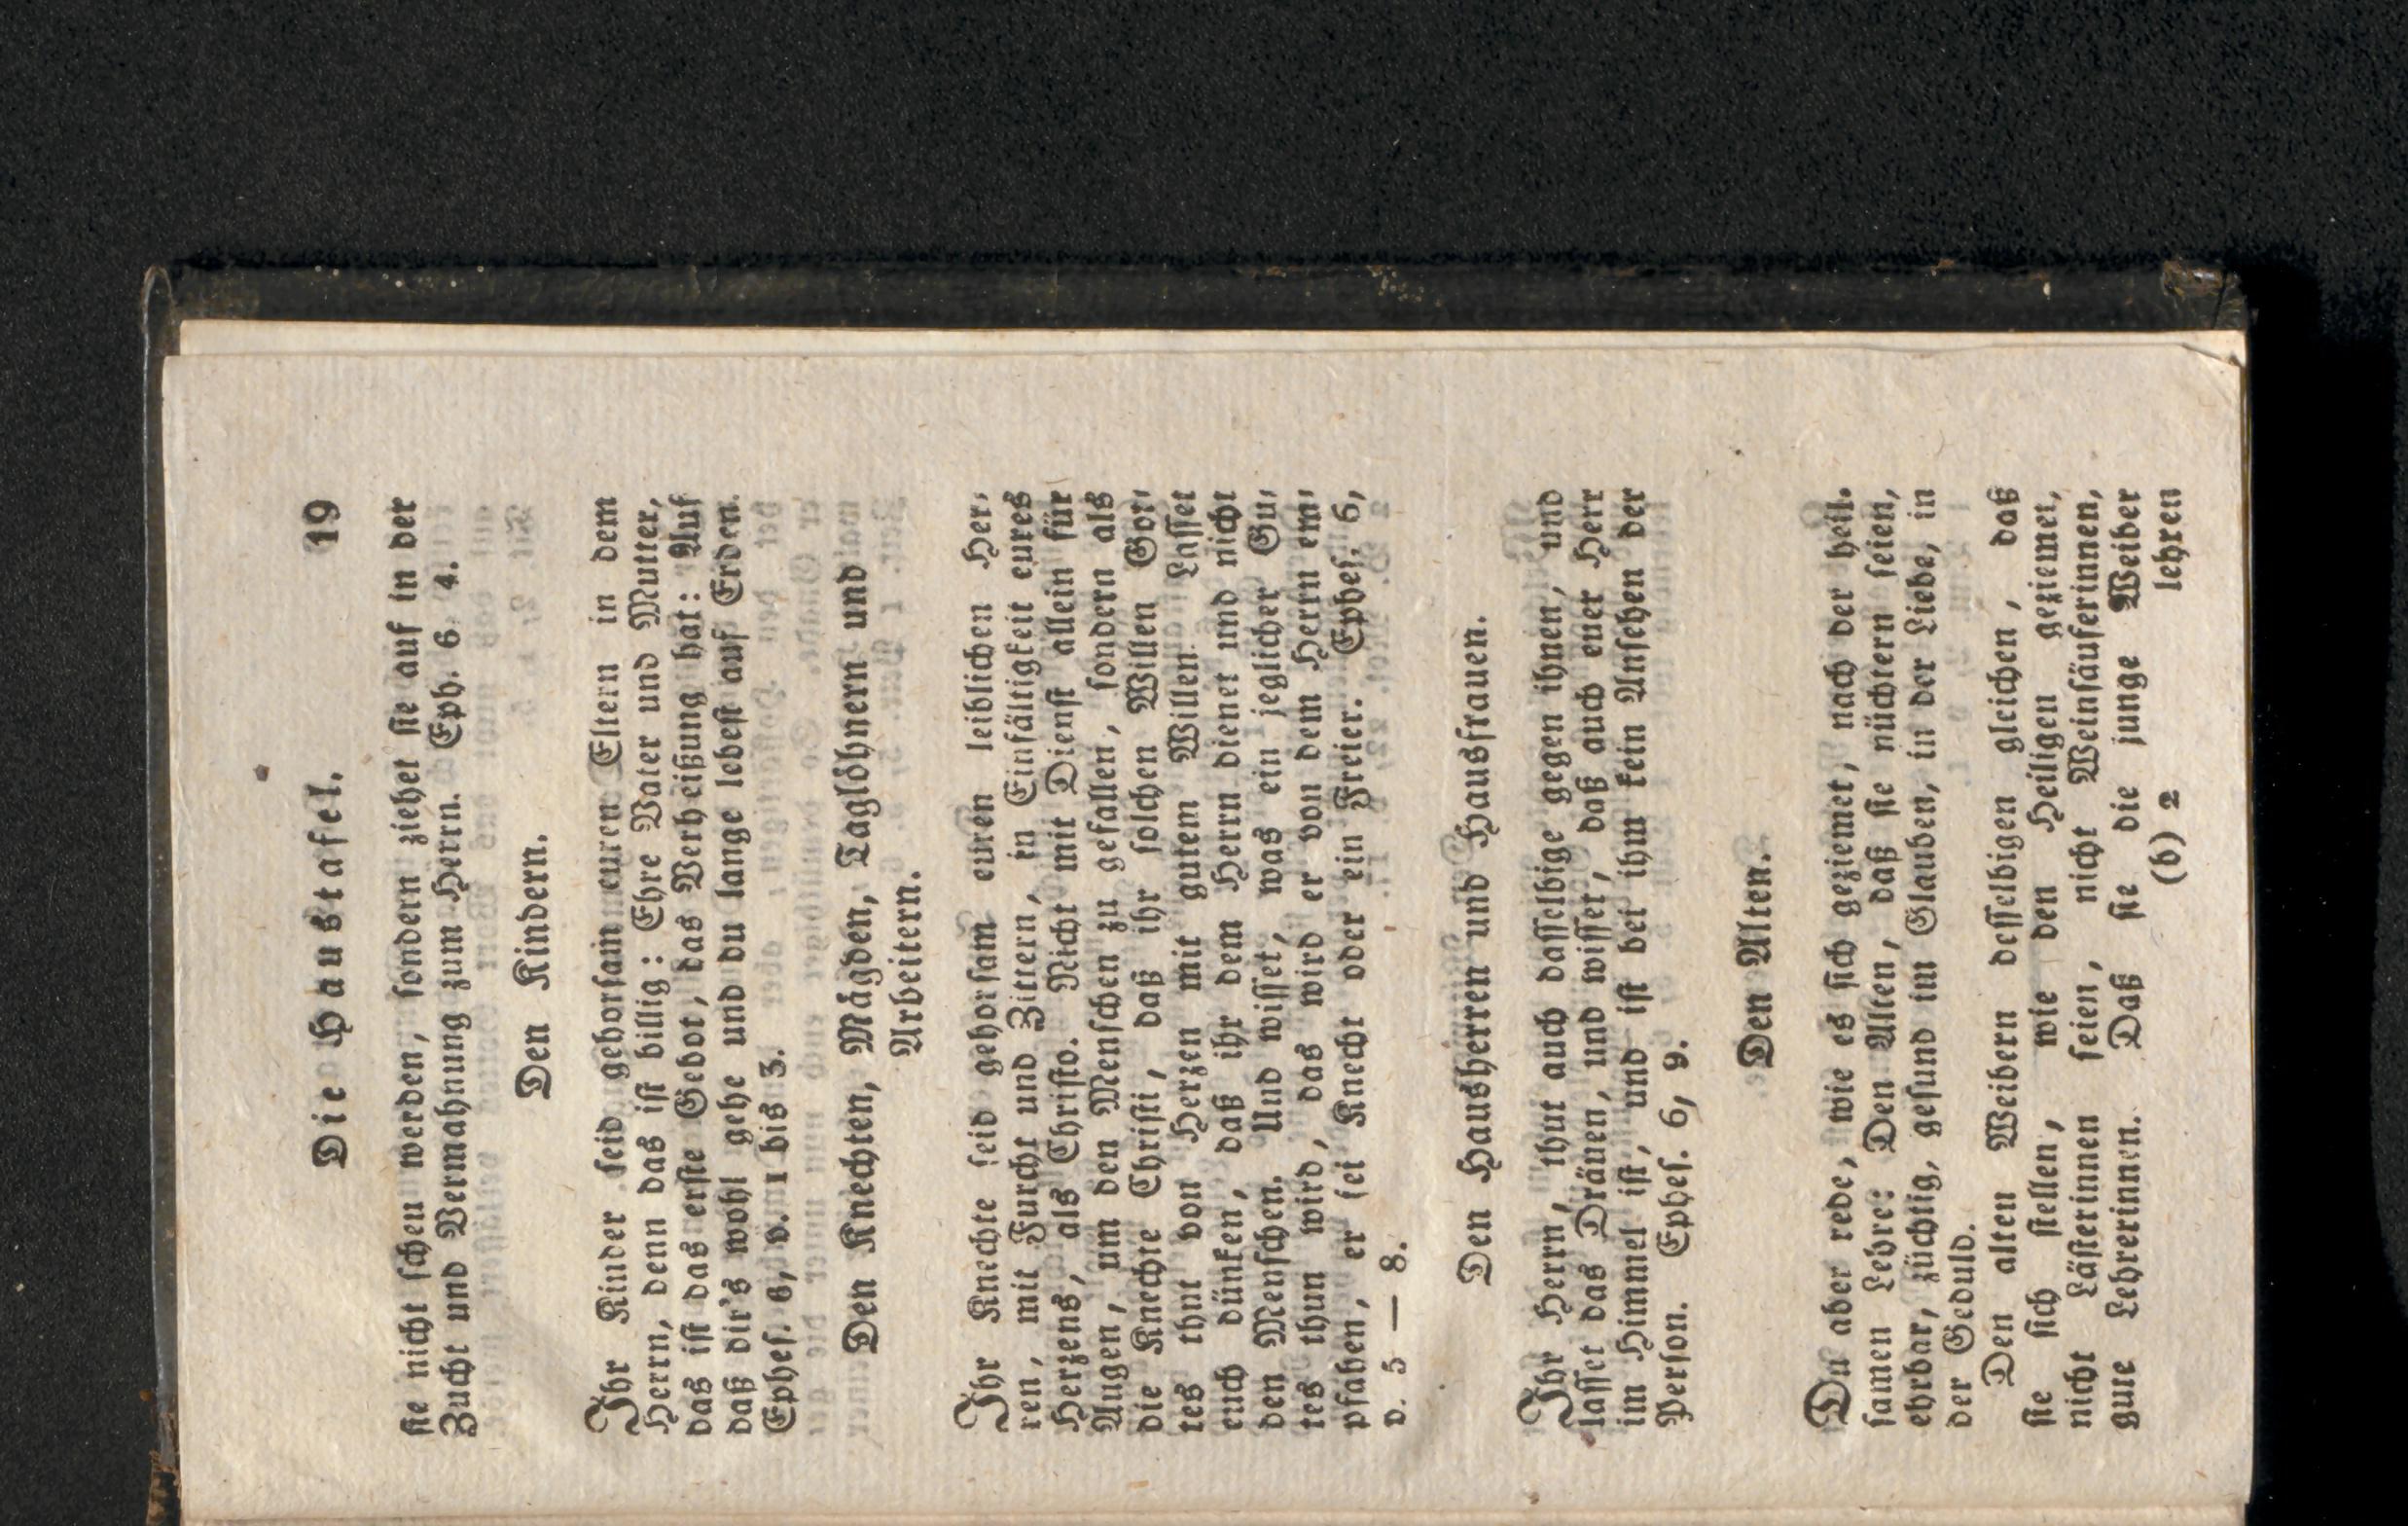 Die Haustafel. 19
sie nicht scheu werden, sondern ziehet sie auf in der
Zucht und Vermahnung zum Herrn. Eph. 6 4.
Den Kindern.
Ihr Kinder seid gehorsam euren Eltern in dem
Herrn, denn das ist billig: Ehre Vater und Mutter,
das ist das erste Gebot, das Verheißung hat: Auf
daß dir's wohl gehe und du lange lebest auf Erden.
Ephes. 6, v. 1 bis 3.
Den Knechten, Mägden, Taglöhnern und
Arbeitern.
Ihr Knechte seid gehorsam euren leiblichen Her-
ren, mit Furcht und Zittern, in Einfältigkeit eures
Herzens, als Christo. Nicht mit Dienst allein für
Augen, um den Menschen zu gefallen, sondern als
die Knechte Christi, daß ihr solchen Willen Got-
tes thut von Herzen mit gutem Willen. Lasset
euch dünken, daß ihr dem Herrn dienet und nicht
den Menschen. Und wisset, was ein jeglicher Gu-
tes thun wird, das wird er von dem Herrn em-
pfahen, er sei Knecht oder ein Freier. Ephes. 6,
v. 5 — 8.
Den Hausherren und Hausfrauen.
Ihr Herrn, thut auch dasselbige gegen ihnen, und
lasset das Dräuen, und wisset, daß auch euer Herr
im Himmel ist, und ist bei ihm kein Ansehen der
Person. Ephes. 6, 9.
Den Alten.
Du aber rede, wie es sich geziemet, nach der heil-
samen Lehre: Den Alten, daß sie nüchtern seien,
ehrbar, züchtig, gesund im Glauben, in der Liebe, in
der Geduld.
Den alten Weibern desselbigen gleichen, daß
sie sich stellen, wie den Heiligen geziemet,
nicht Lästerinnen seien, nicht Weinsäuferinnen,
gute Lehrerinnen. Daß sie die junge Weiber
(b) 2 lehren